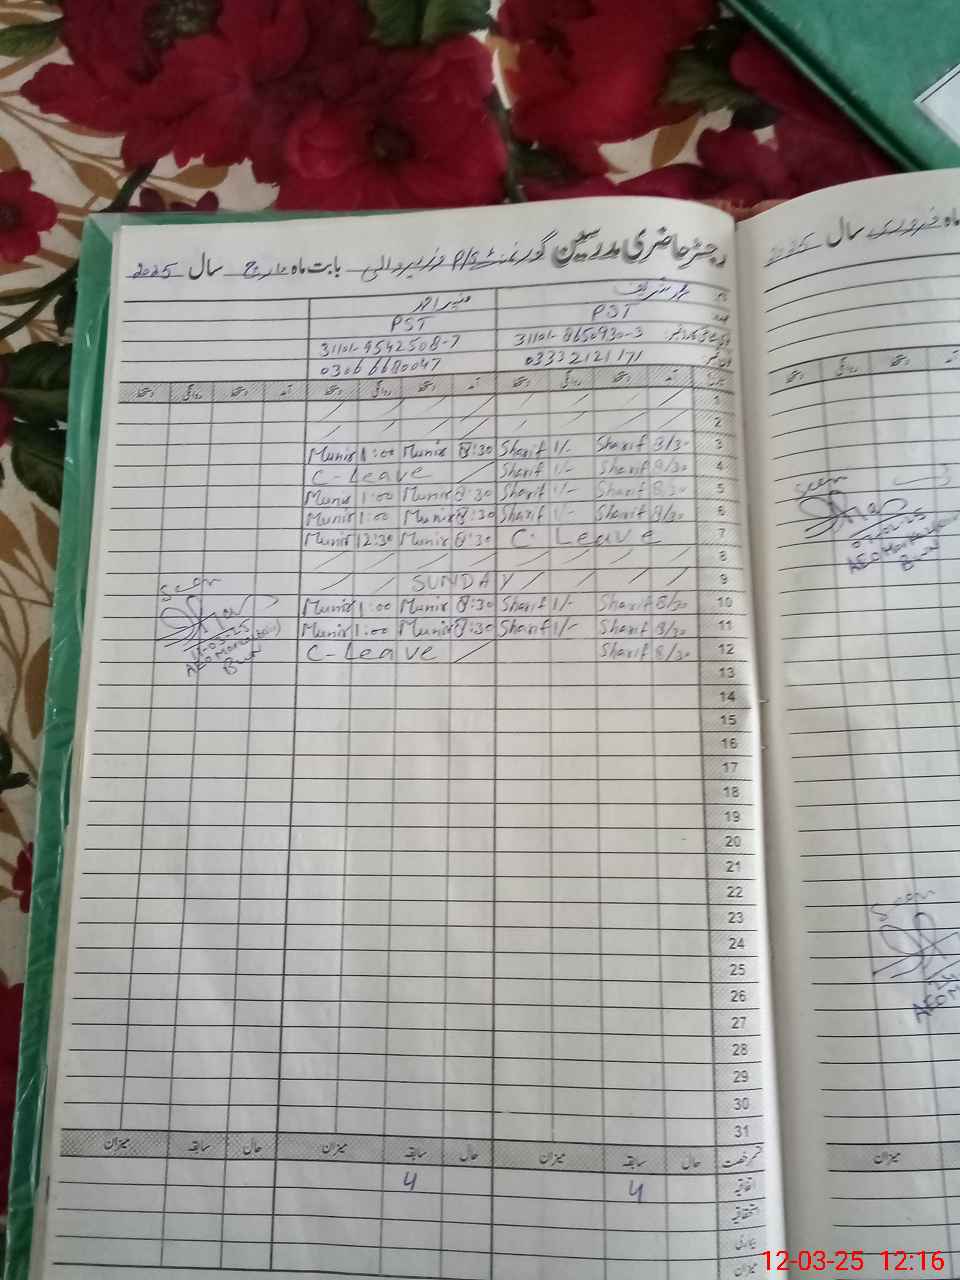 رجسٹر حاضری مدرسین گورنمنٹ P/S بابت ماہ مارچ سال 2025
محمد شریف منیر احمد
PST PST
31101-8650930-3 31101-9542508-7
03332121171 03066680047
1
2
Munir 1:00 Munir 8:30 Sharif 1/- Sharif 8/30 3
C-Leave Sharif 1/- Sharif 8/30 4
Munir 1:00 Munir 8:30 Sharif 1/- Sharif 8/30 5
Munir 1:00 Munir 8:30 Sharif 1/- Sharif 8/30 6
Munir 12:30 Munir 8:30 C. Leave 7
8
SUNDAY 9
Munir 1:00 Munir 8:30 Sharif 1/- Sharif 8/30 10
Munir 1:00 Munir 8:30 Sharif 1/- Sharif 8/30 11
C-Leave Sharif 8/30 12
Seen
11-03-25
AEO Markaz
BWN
13
14
15
16
17
18
19
20
21
22
23
24
25
26
27
28
29
30
31
قسم رخصت حال سابقہ میزان حال سابقہ میزان حال سابقہ میزان
اتفاقیہ 4 4
استحقاقیہ
بیماری
میزان
ماہ فروری سال 2025
Seen
02-25
AEO Markaz
BWN
Seen
AEO M
میزان
12-03-25 12:16